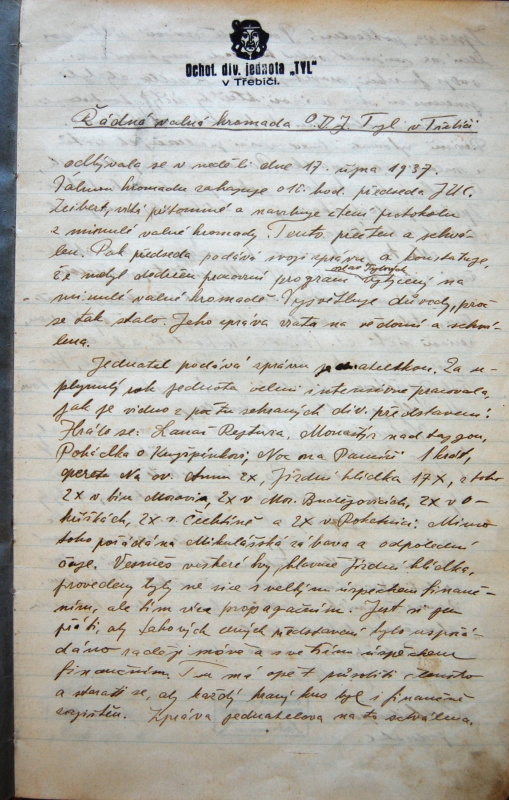 Ochot. div. jednota „TYL"
v Třebíči.
Řádná valná hromada O.D.J. Tyl v Třebíči
odbývala se v neděli dne 17. října 1937.
Valnou hromadu zahajuje o 10. hod. předseda JUC.
Zeibert, vítá přítomné a navrhuje čtení protokolu
z minulé valné hromady. Tento přečten a schvá-
len. Pak předseda podává svoji zprávu a konstatuje,
že nebyl dodržen pracovní program vytýčený na
minulé valné hromadě. Vysvětluje důvody, proč
se tak stalo. Jeho zpráva vzata na vědomí a schvá-
lena.
Jednatel podává zprávu jednatelskou. Za u-
plynulý rok jednota velmi intensivně pracovala,
jak je vidno z počtu sehraných div. představení.
Hrálo se: Monastýr nad
Pohádka o Noc na 1 krát,
opereta Na sv. Annu 2x, Jízdní hlídka 17x, z toho
2x v bio Moravia, 2x v Mor. Budějovicích, 2x v O-
kříškách, 2x v Čechtíně a 2x v Mimo
toho pořádána Mikulášská zábava a odpolední
čaje. Vesměs veškeré hry, hlavně Jízdní hlídka,
provedeny byly ne sice s velkým úspěchem finanč-
ním, ale tím více propagačním. Jest si jen
přáti, aby takových představení bylo uspořá-
dáno raději méně a s větším úspěchem
finančním. má opět
a starati se, aby každý hraný kus byl i finančně
zajištěn. Zpráva jednatelova na to schválena.